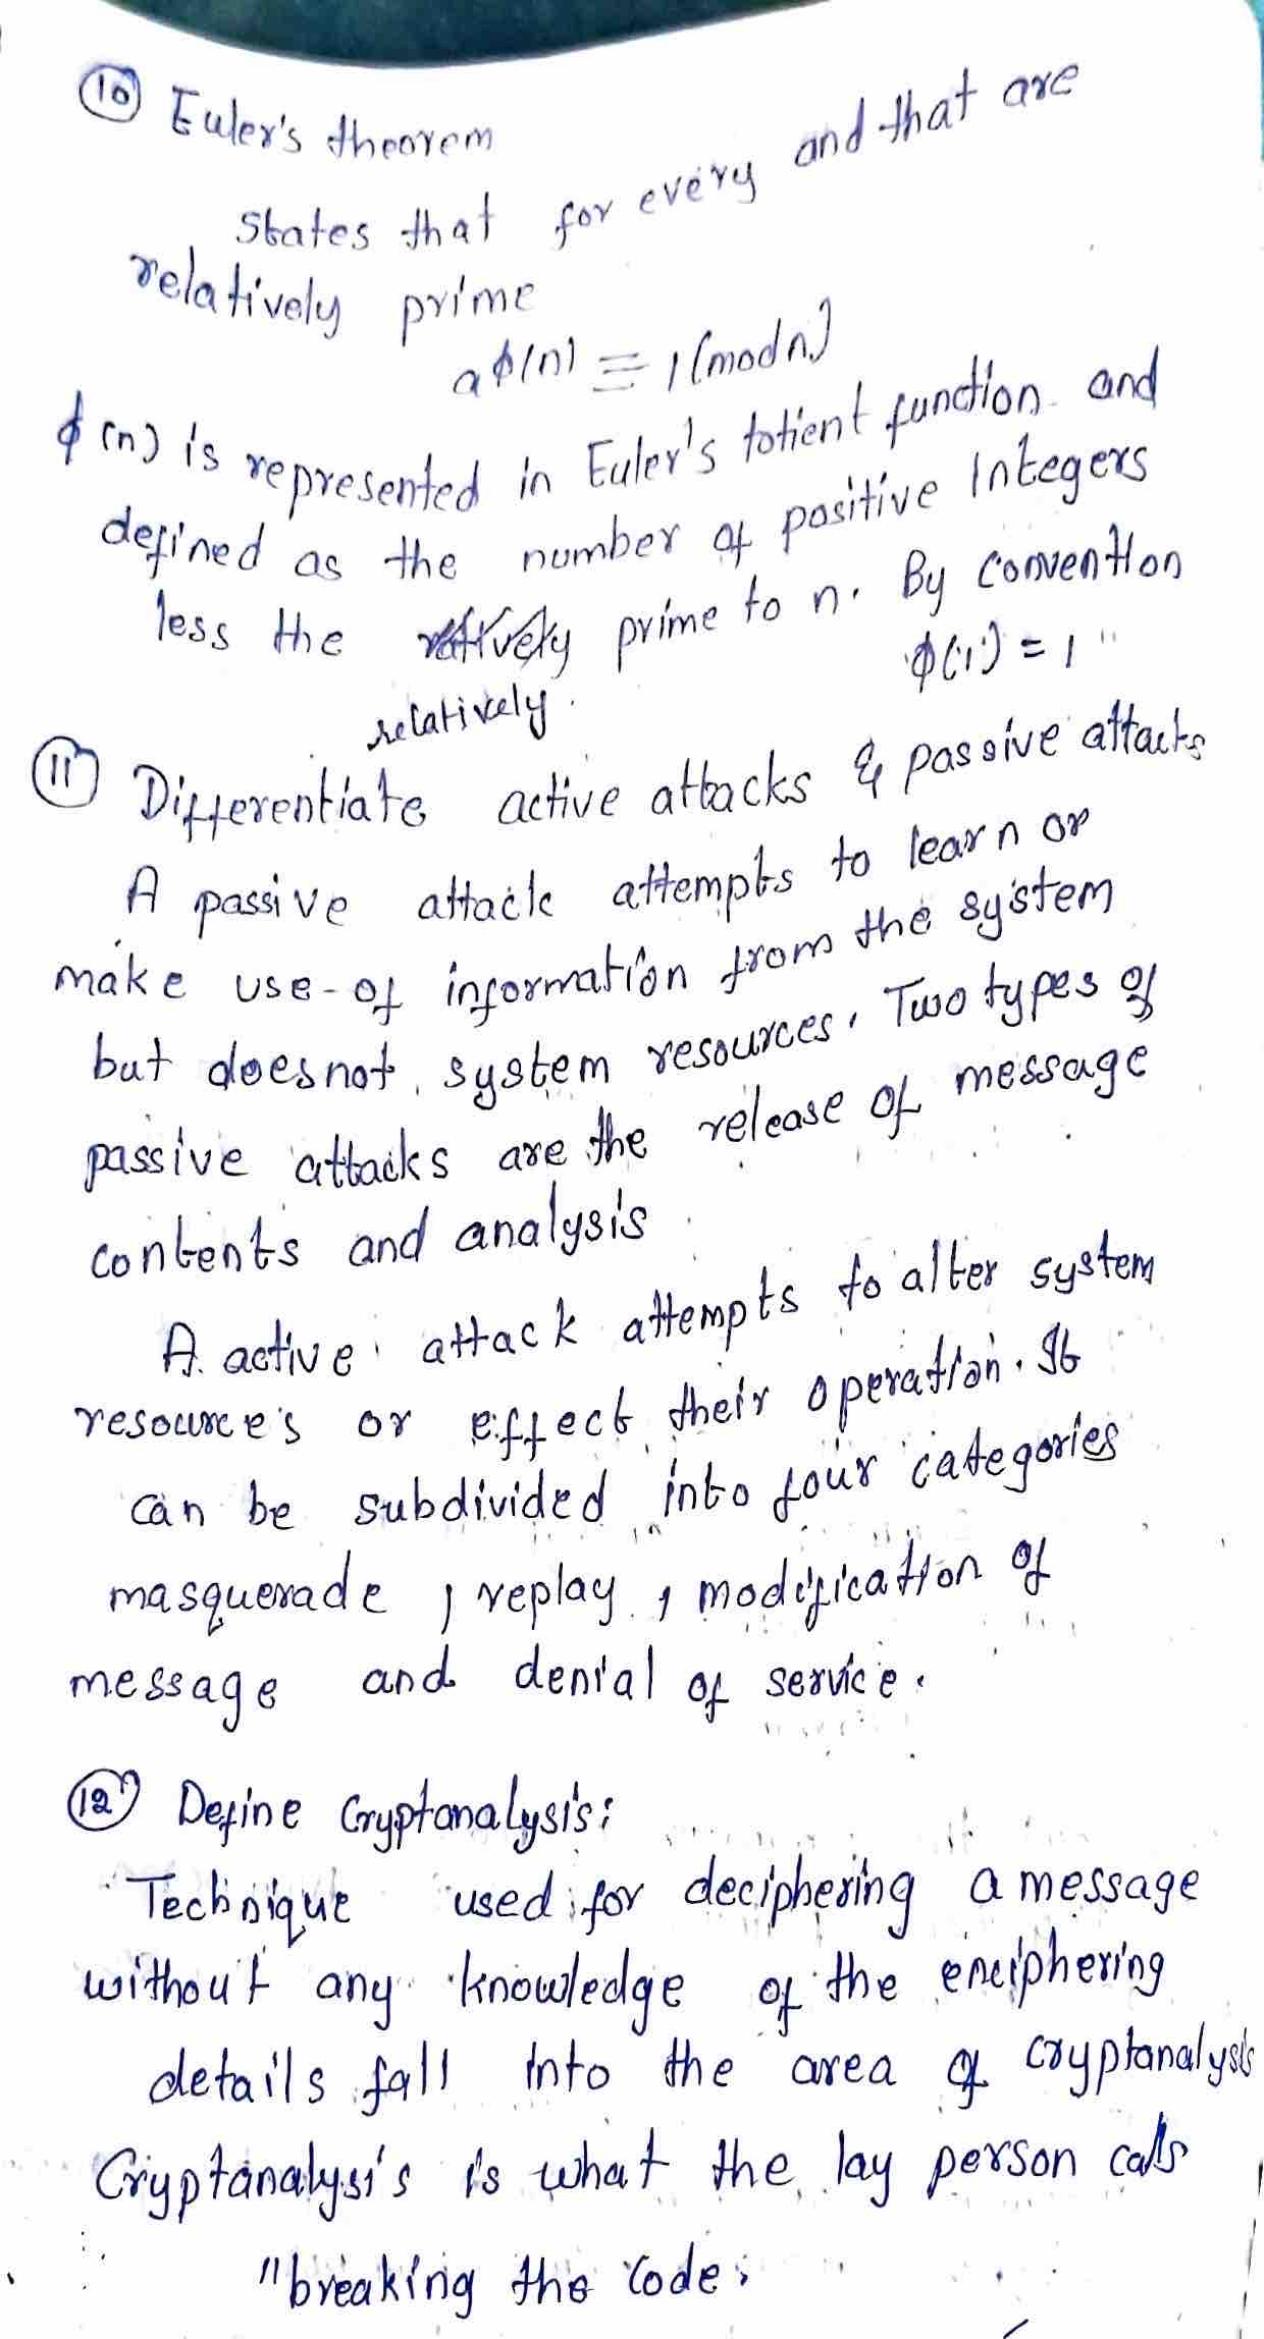 10 Euler's theorem
states that for every and that are
relatively prime
aϕ(n) ≡ 1(mod n)
ϕ(n) is represented in Euler's totient function and
defined as the number of positive Integers
less the prime to n. By convention
relatively.
ϕ(1) = 1"
11 Differentiate active attacks & passive attacks
A passive attack attempts to learn or
make use-of information from the system
but doesnot system resources. Two types of
passive attacks are the release of message
contents and analysis
A active attack attempts to alter system
resources or effect their operation. It
can be subdivided into four categories
masquerade, replay, modification of
message and denial of service.
12 Define Cryptanalysis:
Technique used for deciphering a message
without any knowledge of the enciphering
details fall into the area of cryptanalysis
Cryptanalysis is what the lay person calls
"breaking the code.